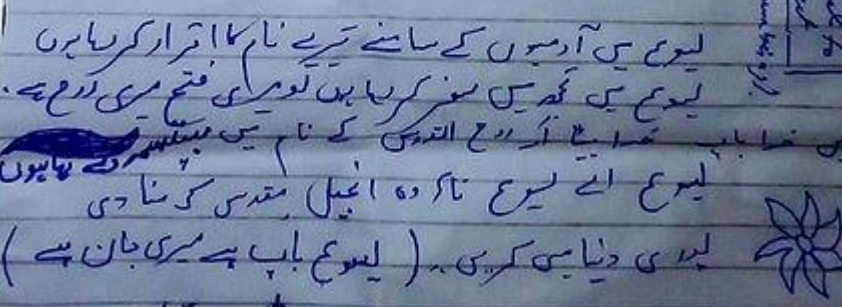 یسوع میں آدمیوں کے سامنے تیرے نام کا اقرار کر رہا ہوں
یسوع میں تجھ میں سفر کر رہا ہوں تو میری فتح میری روح ہے.
میں خدا باپ خدا بیٹا اور روح القدس کے نام میں بپتسمہ دے رہا ہوں
یسوع اے یسوع تاکہ وہ انجیل مقدس کی منادی
پوری دنیا میں کریں. (یسوع باپ ہے میری جان ہے)